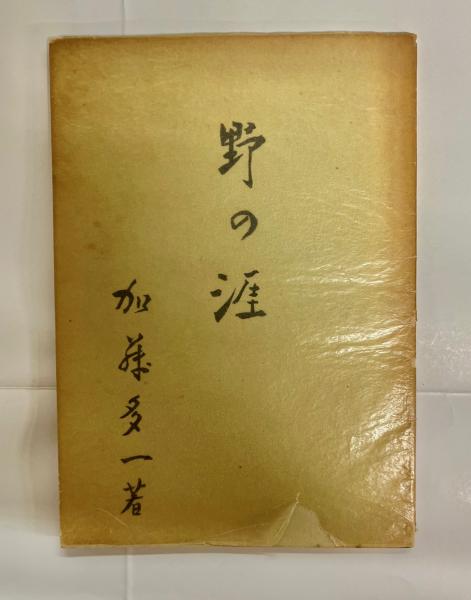 野の涯
加藤多一著